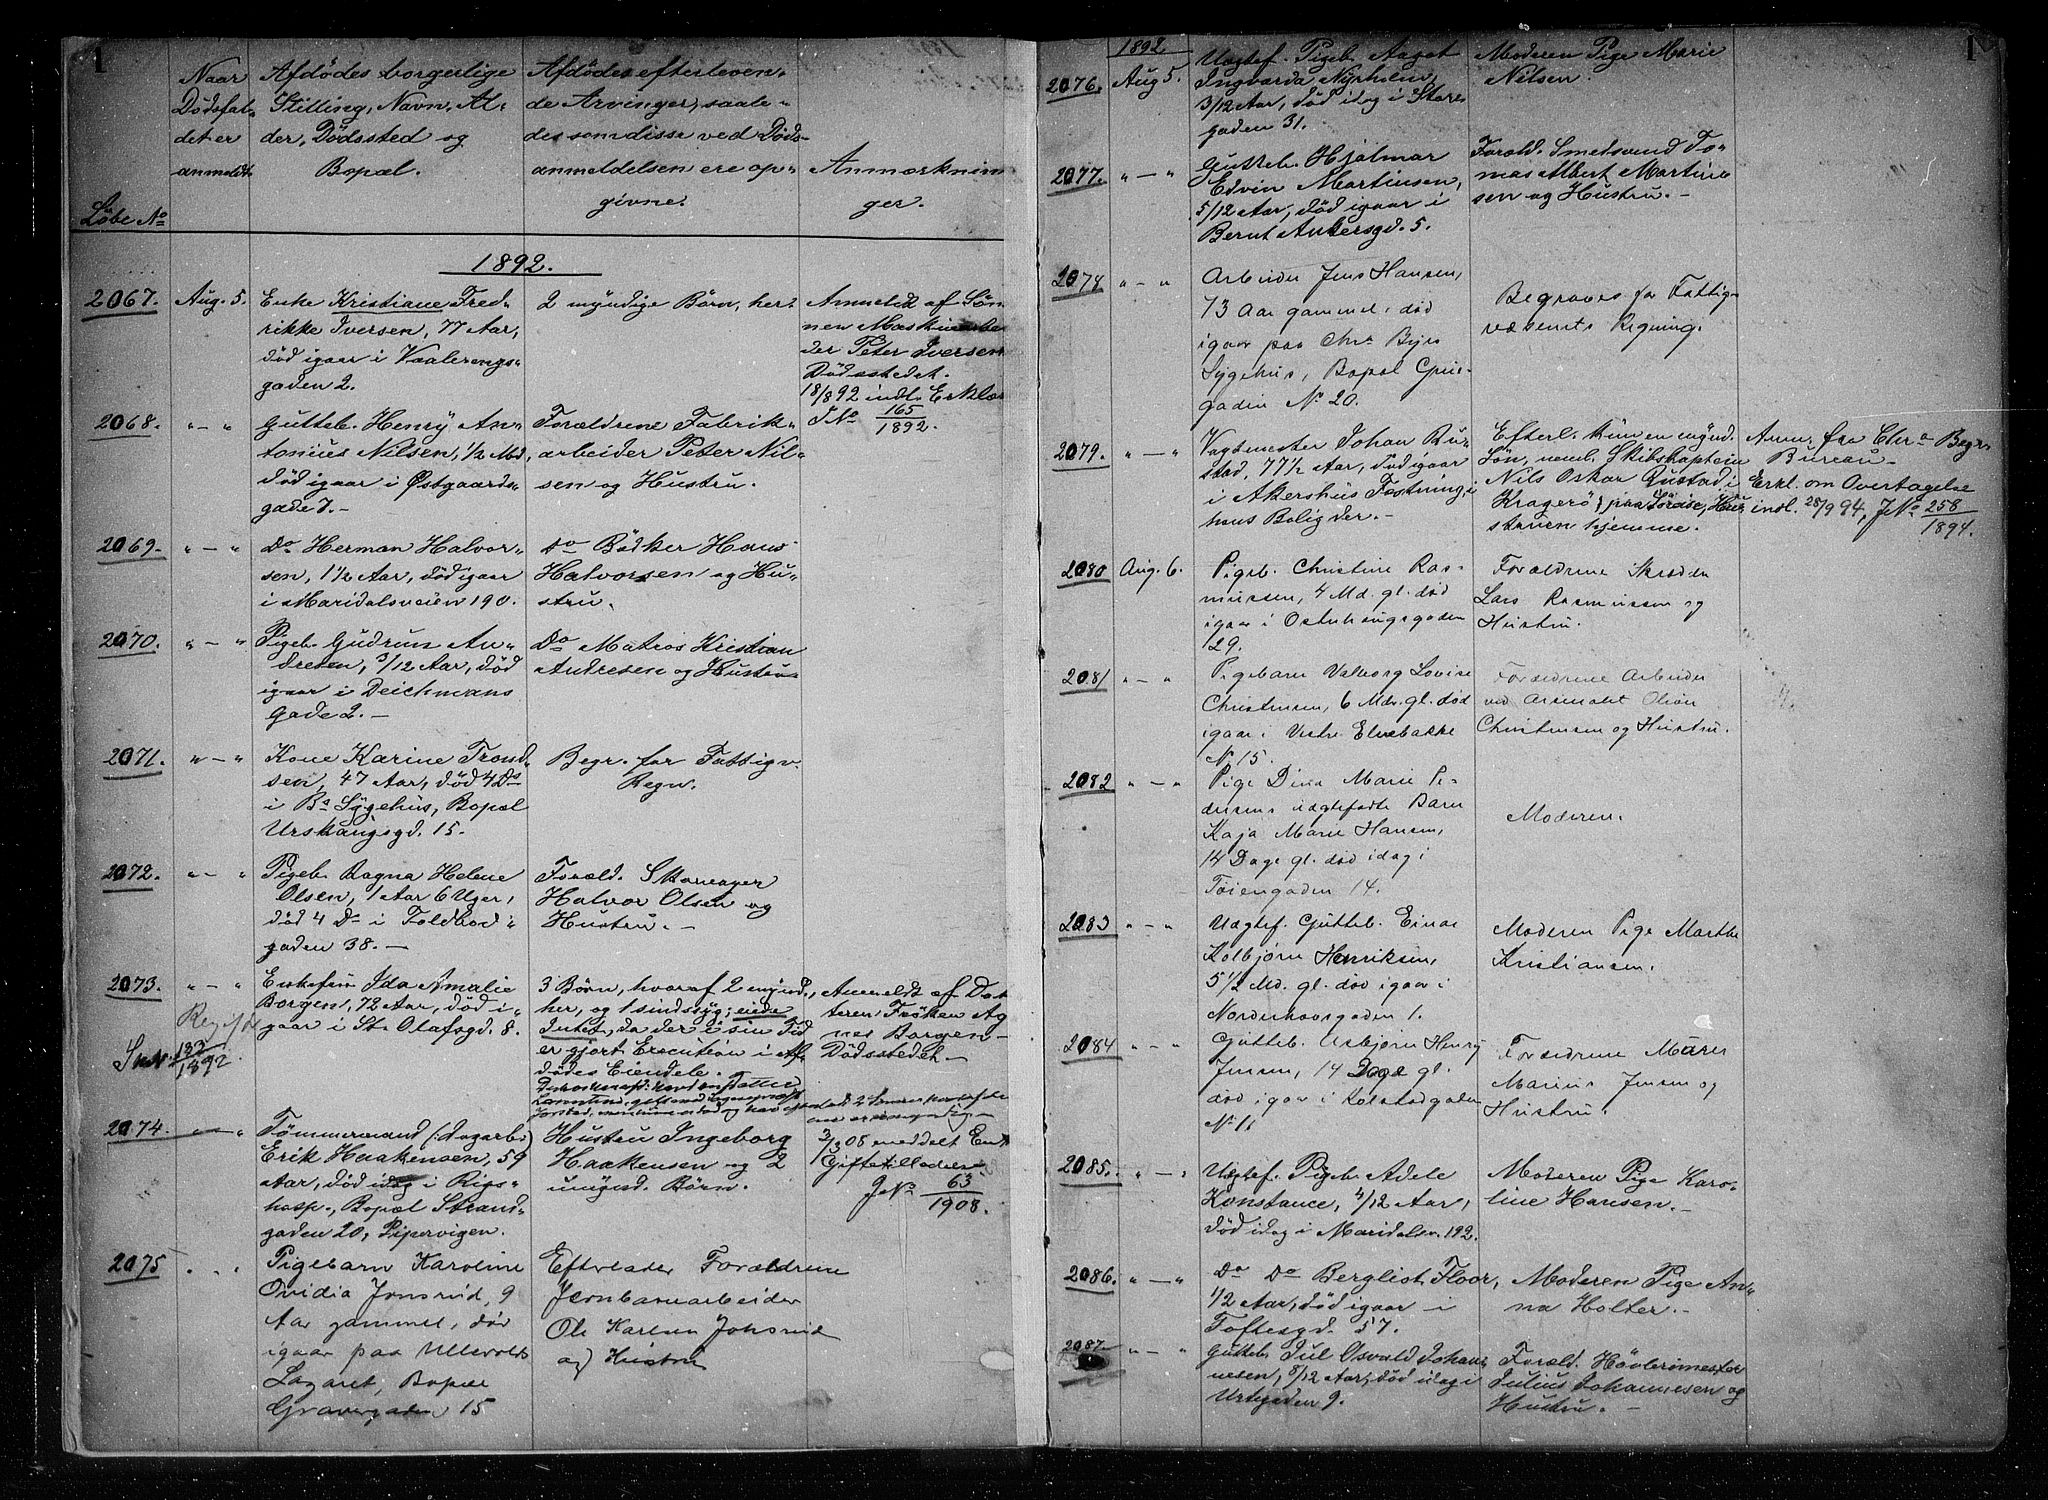 1
Naar
Dødsfal-
det er
anmeldt.
Løbe No
Afdødes borgerlige
Stilling, Navn, Al-
der, Dødssted og
Bopæl.
Afdødes efterleven-
de Arvinger, saale-
des som disse ved Døds-
anmeldelsen ere op-
givne.
Anmærknin
ger.
1892.
2067. Aug. 5.
Enke Kristiane Fred-
rikke Iversen, 77 Aar,
død igaar i Vaalerengs-
gaden 2.
2 myndige Børn, her.
Anmeldt af Søn
nen Maskinarbei
der Peter Iversen
Dødsstedet.
18/8 92 indl. Erklær
J No 165/1892.
2068. " — "
Gutteb. Henry An-
tonius Nilsen, 1/2 Md,
død igaar i Østgaards-
gade 7. —
Forældrene Fabrik-
arbeider Peter Nil-
sen og Hustru.
2069. " — "
Do Herman Halvor-
sen, 1 1/2 Aar, død igaar
i Maridalsveien 190.
Do Bødker Hans
Halvorsen og Hu-
stru.
2070. " — "
Pigeb. Gudrun An-
dresen, 3/12 Aar, død
igaar i Deichmans
gade 2. —
Do Matros Kristian
Andresen og Hustru
2071. " — "
Kone Karine Trond-
sen, 47 Aar, død 4 Ds
i Bs Sygehus, Bopæl
Urskaugsgd. 15.
Begr. for Fattigv.
Regn.
2072. " — "
Pigeb. Ragna Helene
Olsen, 1 Aar 6 Uger,
død 4 Ds i Toldbod-
gaden 38. —
Foræld. Skomager
Halvor Olsen og
Hustru. —
2073. " — "
Enkefru Ida Amalie
Borgen, 72 Aar, død i-
gaar i St. Olafsgd. 8.
133/1892.
3 Børn, hvoraf 2 mynd.,
her, og 1 sindssyg; eiede
Intet, da der i sin Tid
er gjort Execution i Af-
dødes Eiendele.
Anmeldt af Dat
teren, Frøken Ag
nes Borgen —
Dødsstedet. —
2074. " — "
Tømmermand (Dagarb.)
Erik Haakensen, 59
Aar, død idag i Rigs-
hosp., Bopæl Strand-
gaden 20, Pipervigen.
Hustru Ingeborg
Haakensen og 2
umynd. Børn.
3/3 08 meddelt En
Giftetilladelse
J No 63/1908.
2075 " "
Pigebarn Karoline
Ovidia Jonsrud, 9
Aar gammel, død
igaar paa Ullevolds
Lazaret, Bopæl
Gravergaden 15
Efterlader Forældrene
Jernbanearbeider
Ole Karlsen Johnsrud
og Hustru
1892
1
2076. Aug 5.
Uægtef. Pigeb. Aagot
Ingvarda Nyrholm,
3/12 Aar, død idag i Stor
gaden 31.
Moderen Pige Marie
Nilsen.
2077. " — "
Gutteb. Hjalmar
Edvin Martinsen,
5/12 Aar, død igaar i
Bernt Ankersgd. 5.
Foræld. Smedsvend To-
mas Albert Martin
sen og Hustru. —
2078 " — "
Arbeider Jens Hansen,
73 Aar gammel, død
igaar paa Chra Byes
Sygehus, Bopæl
gaden No 20.
Begraves for Fattig-
væsenets Regning.
2079. " — "
Vagtmester Johan Ru-
stad, 77 1/2 Aar, død igaar
i Akershus Fæstning,
hans Bolig der. —
Efterl. kun en mynd.
Søn, neml. Skibskaptein
Nils Oskar Rustad i
Kragerø, paa Søreise, Hu-
struen hjemme.
Anm. fra Chra Begr.
Bureau —
Erkl. om Overtagelse
indl. 28/9 94, J No 258/1894.
2080 Aug. 6.
Pigeb. Christine Ras-
mussen, 4 Md. gl. død
igaar i
29.
Forældrene Skrædder
Lars Rasmussen og
Hustru.
2081 " — "
Pigebarn Valborg Lovise
Christensen, 6 Mdr. gl. død
igaar i Vestre Elvebakke
No 15.
Forældrene Arbeider
ved Arsenalet
Christensen og Hustru.
2082 " — "
Pige Dina Marie Pe-
dersens uægtefødte Barn
Kaja Marie Hansen,
14 Dage gl. død idag i
Tøiengaden 14.
Moderen.
2083 " — "
Uægtef. Gutteb. Einar
Kolbjørn Henriksen,
5 1/2 Md. gl. død igaar i
Norderhovsgaden 1.
Moderen Pige Marthe
Kristiansen.
2084 " — "
Gutteb. Asbjørn Henry
Jensen, 14 Dage gl.
død igaar i Kolstadgaden
No 11
Forældrene Murer
Marius Jensen og
Hustru.
2085. " — "
Uægtef. Pigeb. Adele
Konstance, 4/12 Aar,
død idag i Maridalsv. 192.
Moderen Pige Karo-
line Hansen. —
2086. " — "
Do Do Berglioth Floor,
1/2 Aar, død igaar i
Toftesgd. 57.
Moderen Pige An-
na Holter. —
2087. " — "
Gutteb. Jul Osvald Johan-
nesen, 8/12 Aar, død idag i
Urtegaden 9.
Foræld. Høvlerimester
Julius Johannesen og
Hustru. —